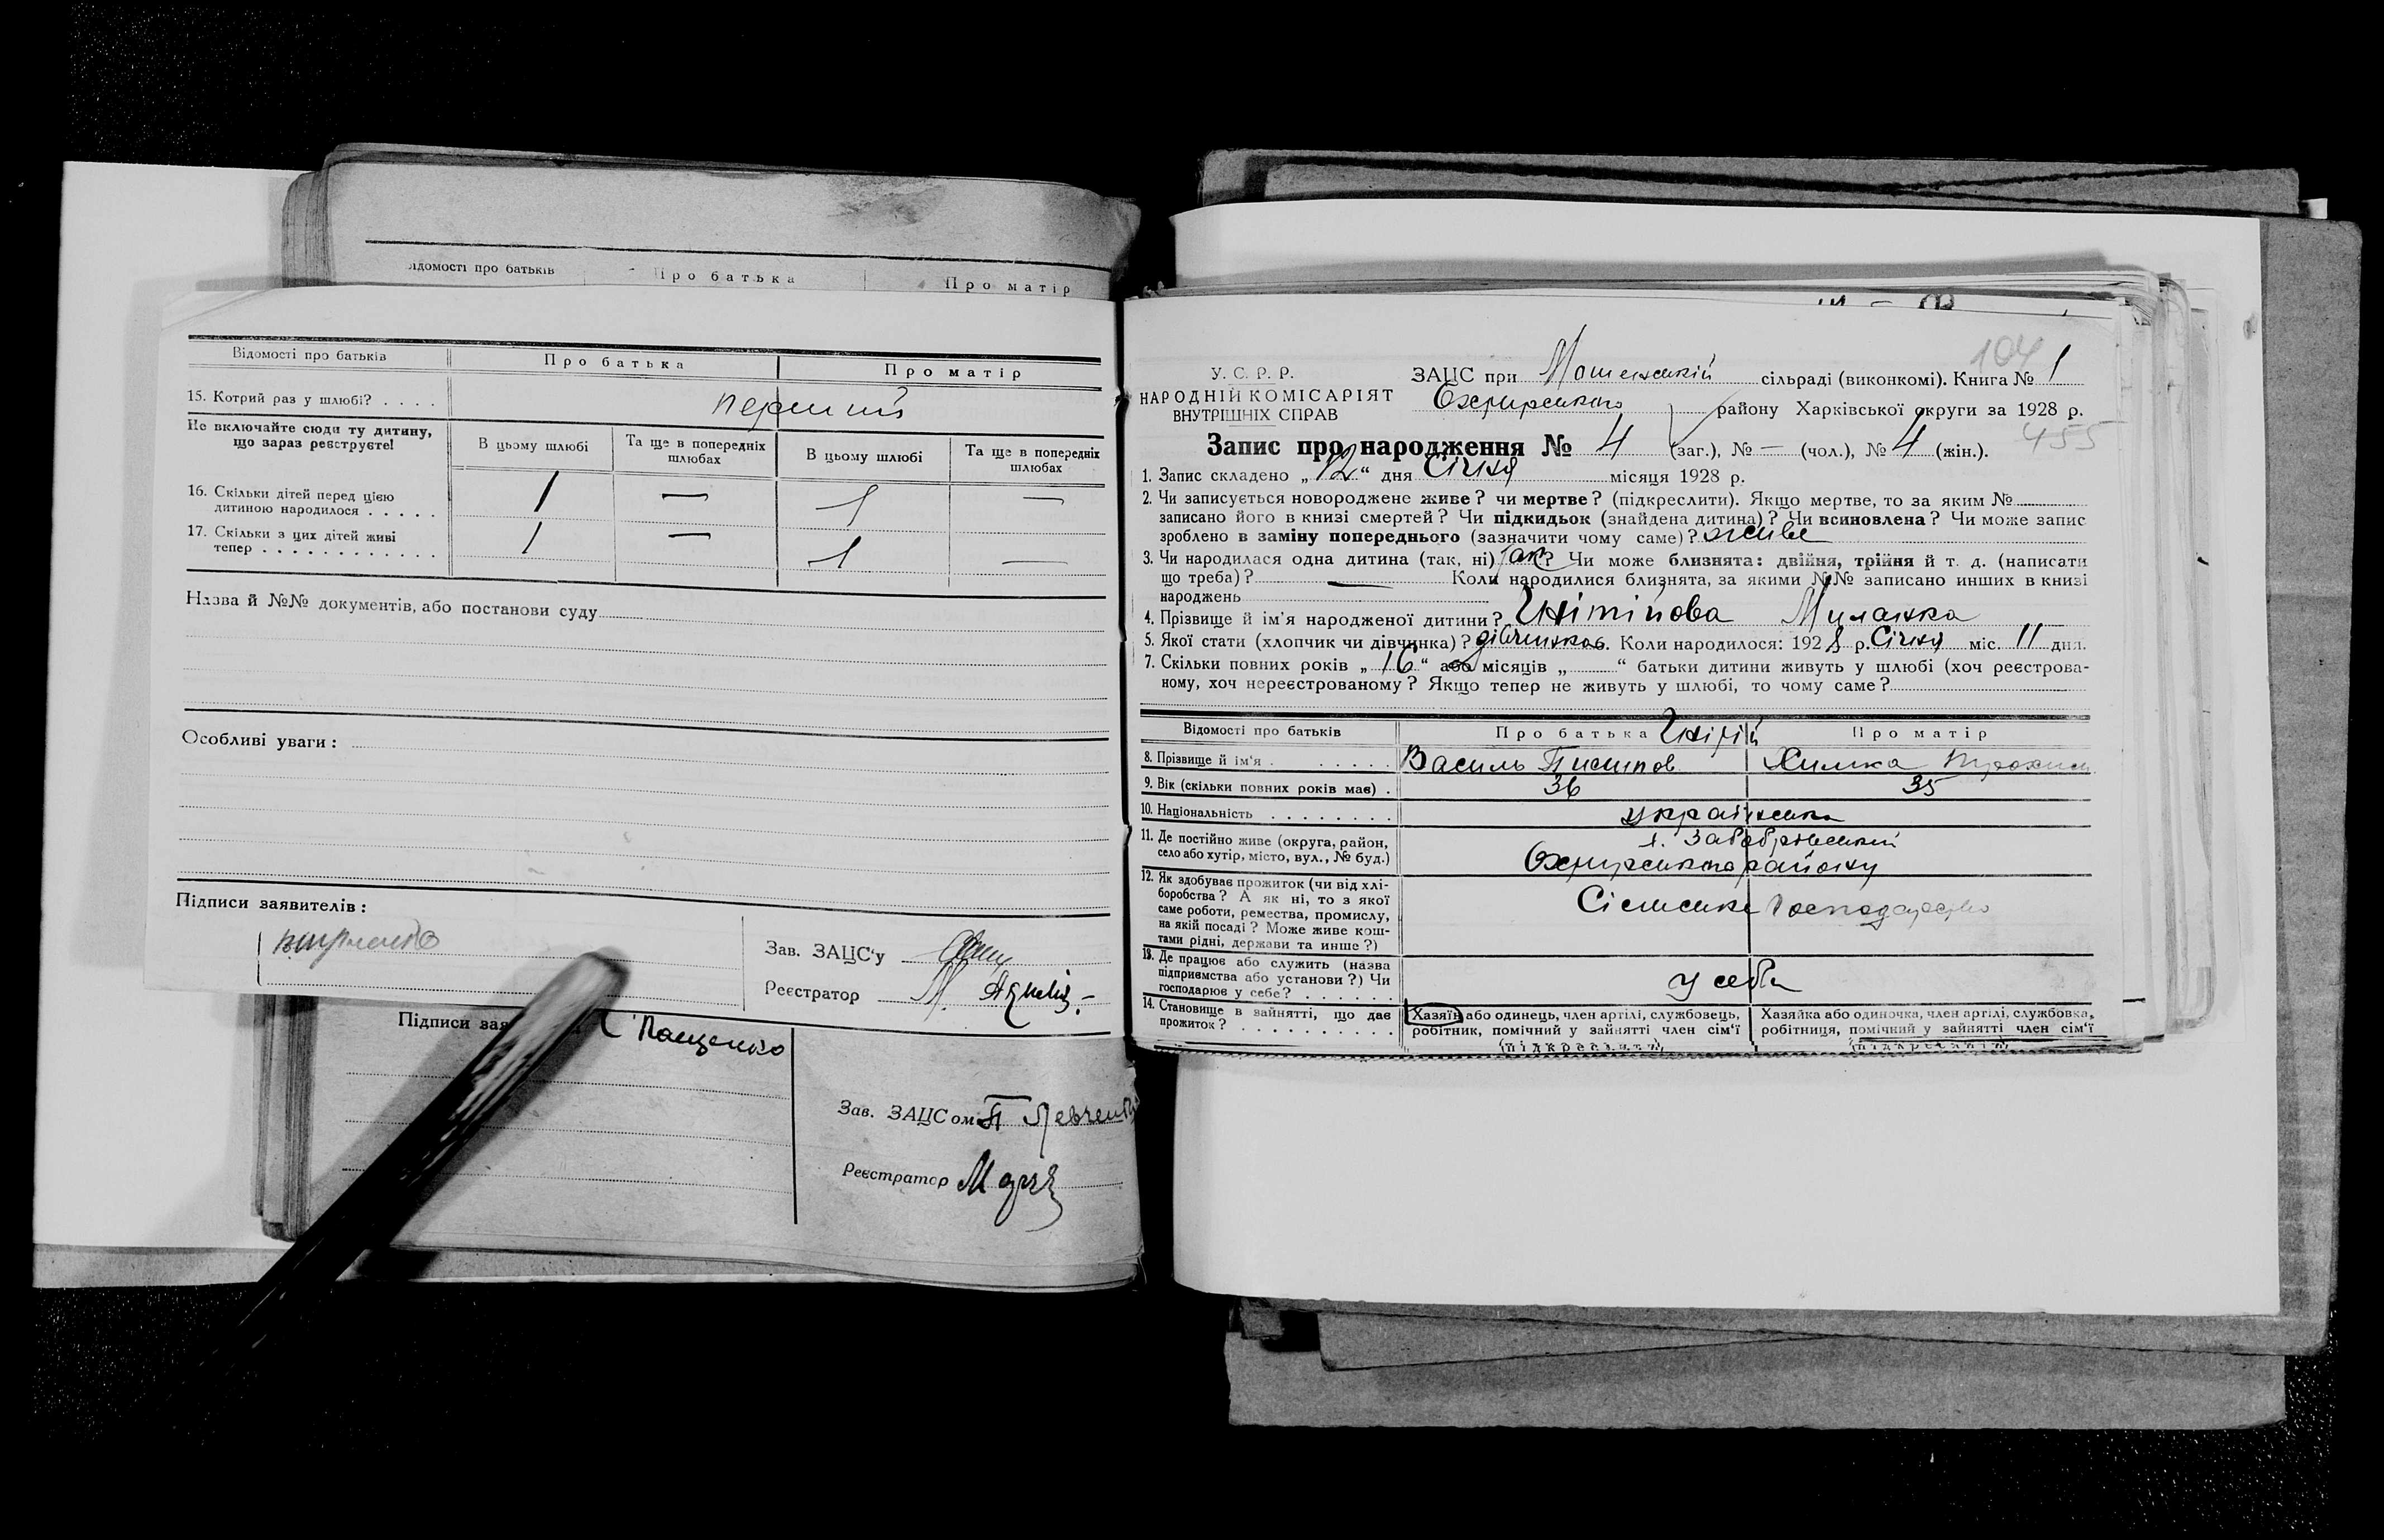 ідомості про батьків
Про батька
Про матір
Відомості про батьків
Про батька
Про матір
15. Котрий раз у шлюбі? . . . .
Не включайте сюди ту дитину, що зараз реєструєте!
В цьому шлюбі
Та ще в попередніх шлюбах
В цьому шлюбі
Та ще в попередніх шлюбах
16. Скільки дітей перед цією
дитиною народилося . . . . .
1 — 1 —
17. Скільки з цих дітей живі
тепер . . . . . . . . . . . .
1 — 1 —
Назва й №№ документів, або постанови суду
Особливі уваги :
Підписи заявителів :
Зав. ЗАЦС'у
Реєстратор М.
Підписи зая
Пащенко
Зав. ЗАЦСом П Левченко
Реєстратор
104
У. С. Р. Р.
НАРОДНІЙ КОМІСАРІЯТ
ВНУТРІШНІХ СПРАВ
ЗАЦС при сільраді (виконкомі). Книга № 1
Охтирського району Харківської округи за 1928 р.
455
Запис про народження № 4 (заг.), № — (чол.), № 4 (жін.).
1. Запис складено „ 12 “ дня Січня місяця 1928 р.
2. Чи записується новороджене живе? чи мертве? (підкреслити). Якщо мертве, то за яким №
записано його в книзі смертей? Чи підкидьок (знайдена дитина)? Чи всиновлена? Чи може запис
зроблено в заміну попереднього (зазначити чому саме)? живе
3. Чи народилася одна дитина (так, ні) так? Чи може близнята: двійня, трійня й т. д. (написати
що треба)? — Коли народилися близнята, за якими №№ записано инших в книзі
народжень
4. Прізвище й ім'я народженої дитини? Миланка
5. Якої стати (хлопчик чи дівчинка)? дівчинка 6. Коли народилося: 1928 р. Січня міс. 11 дня.
7. Скільки повних років „ 16 “ або місяців „ “ батьки дитини живуть у шлюбі (хоч реєстрова-
ному, хоч нереєстрованому? Якщо тепер не живуть у шлюбі, то чому саме?
Відомості про батьків
Про батька
Про матір
8. Прізвище й ім'я . . . . . . Василь
9. Вік (скільки повних років має) . 36 35
10. Національність . . . . . . . . українська
11. Де постійно живе (округа, район,
село або хутір, місто, вул., № буд.)
Охтирського району
12. Як здобуває прожиток (чи від хлі-
боробства? А як ні, то з якої
саме роботи, ремества, промислу,
на якій посаді? Може живе кош-
тами рідні, держави та инше?)
Сільське господарство
13. Де працює або служить (назва
підприємства або установи?) Чи
господарює у себе? . . . . . .
у себе
14. Становище в зайнятті, що дає
прожиток? . . . . . . . . . .
Хазяїн або одинець, член артілі, службовець,
робітник, помічний у зайнятті член сім'ї
(підкреслить)
Хазяйка або одиночка, член артілі, службовка,
робітниця, помічний у зайнятті член сім'ї
(підкреслить)